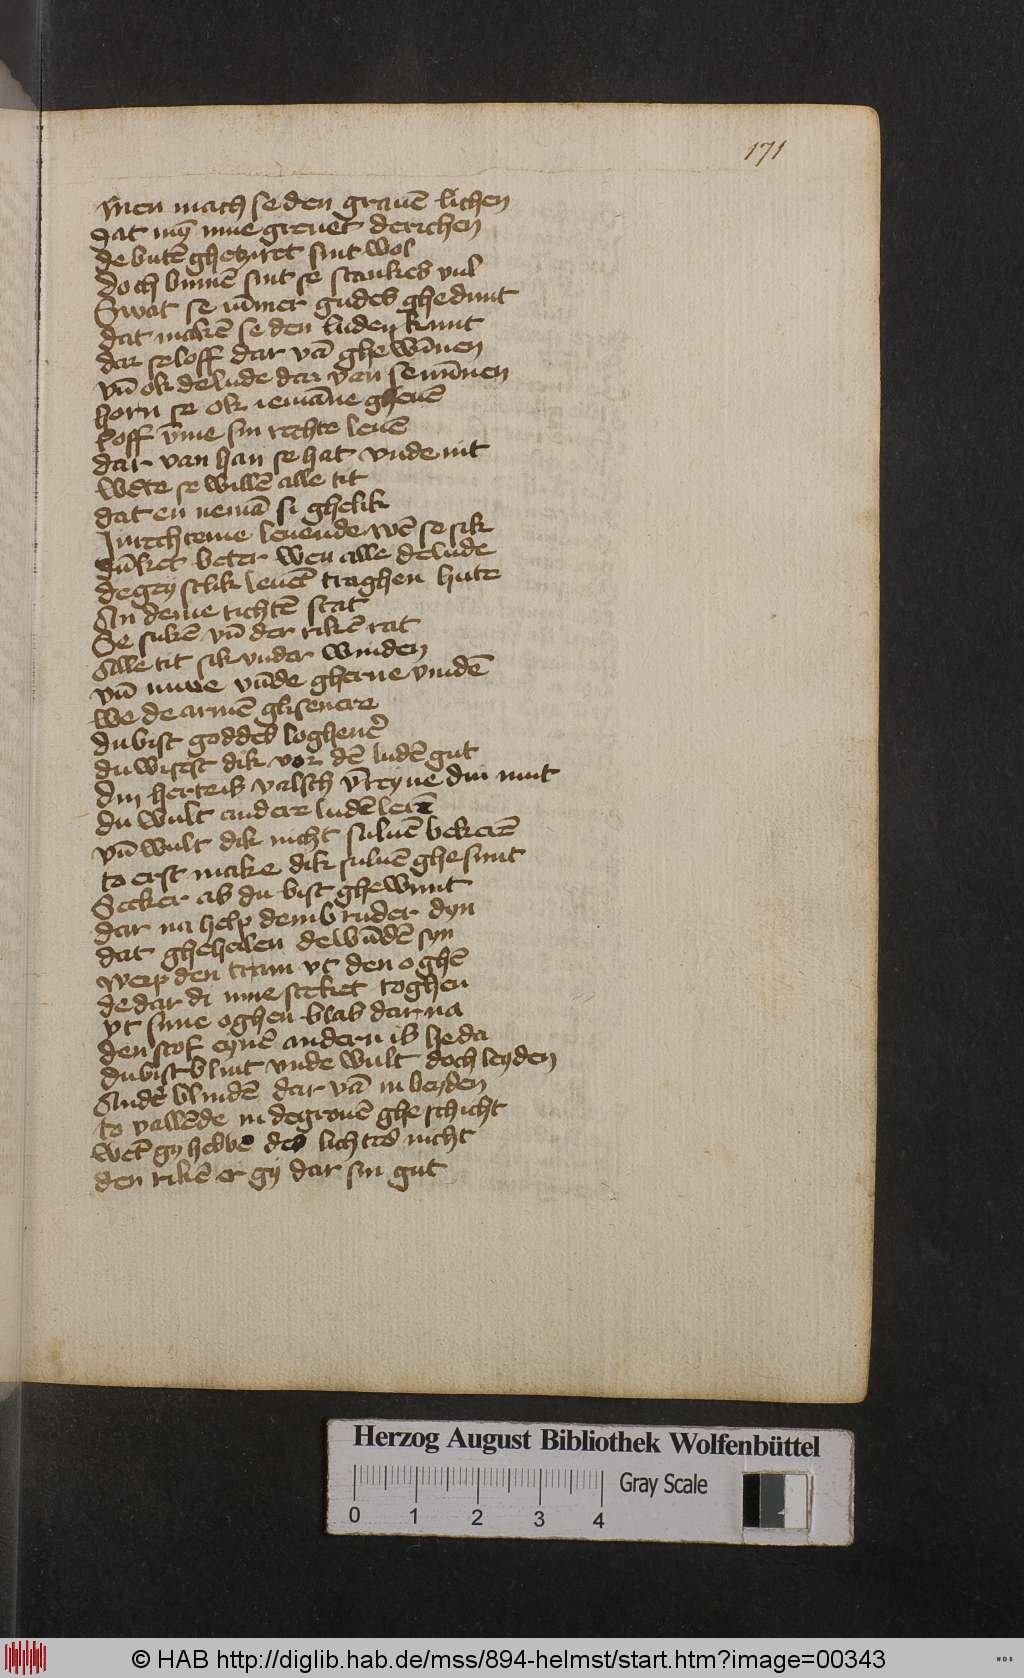 171
Men mach se den grauē lichen
dat mē inne greuet de richen
de butē gheziret sint wol
doch binnē sint se stankes vul
Swat se ūmer gudes ghedunt
dat makē se den luden kunt
dar se loff dar vā ghewīnen
vn̄ ok de lude dar van se mīnen
horn se ok iemāne gheuē
loff vme sin rechte leuē
dar van han se hat vnde nit
wēte se willē alle tit
dat en nemā si ghelik
In rechteme leuende wē se sik
dūket beter wen alle de lude
de geystlik leuēt traghen hute
An deme richtē stat
Se sukē vn̄ der rikē rat
Alle tit sik vnder winden
vn̄ nuwe vūde gherne vindē
we de armē glisenere
du bist goddes loghenēr
du wisest dik vor dē ludē gut
din herte is valsch vnreyne din mut
du wult andere ludē lerē
vn̄ wult dik nicht suluē bekerē
to erst make dik suluē ghesunt
Secker ab du bist ghewunt
dar na help dem bruder dyn
dat gheheilen de wūdē syn
werp den tram vt den oghē
de dar di inne stecket toghen
vt sime oghen blas dar na
den stof eynē andern is he da
du bist blint vnde wult doch leyden
Andē blindē dar vā in beyden
to vallēde in de grouē gheschicht
wēt gy hebbē des lichtes nicht
den rikē er gy dar sin gut
Herzog August Bibliothek Wolfenbüttel
Gray Scale
0 1 2 3 4
© HAB http://diglib.hab.de/mss/894-helmst/start.htm?image=00343